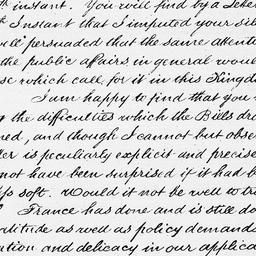 instant. You will find by a
Instant that I imputed your
persuaded that the same
the public affairs in general
which call for it in this
I am happy to find that you
the difficulties which the Bills
and though I cannot but
is peculiarly explicit and precise
not have been surprised if it had
soft. Would it not be well to
France has done and is still
as well as policy
and delicacy in our